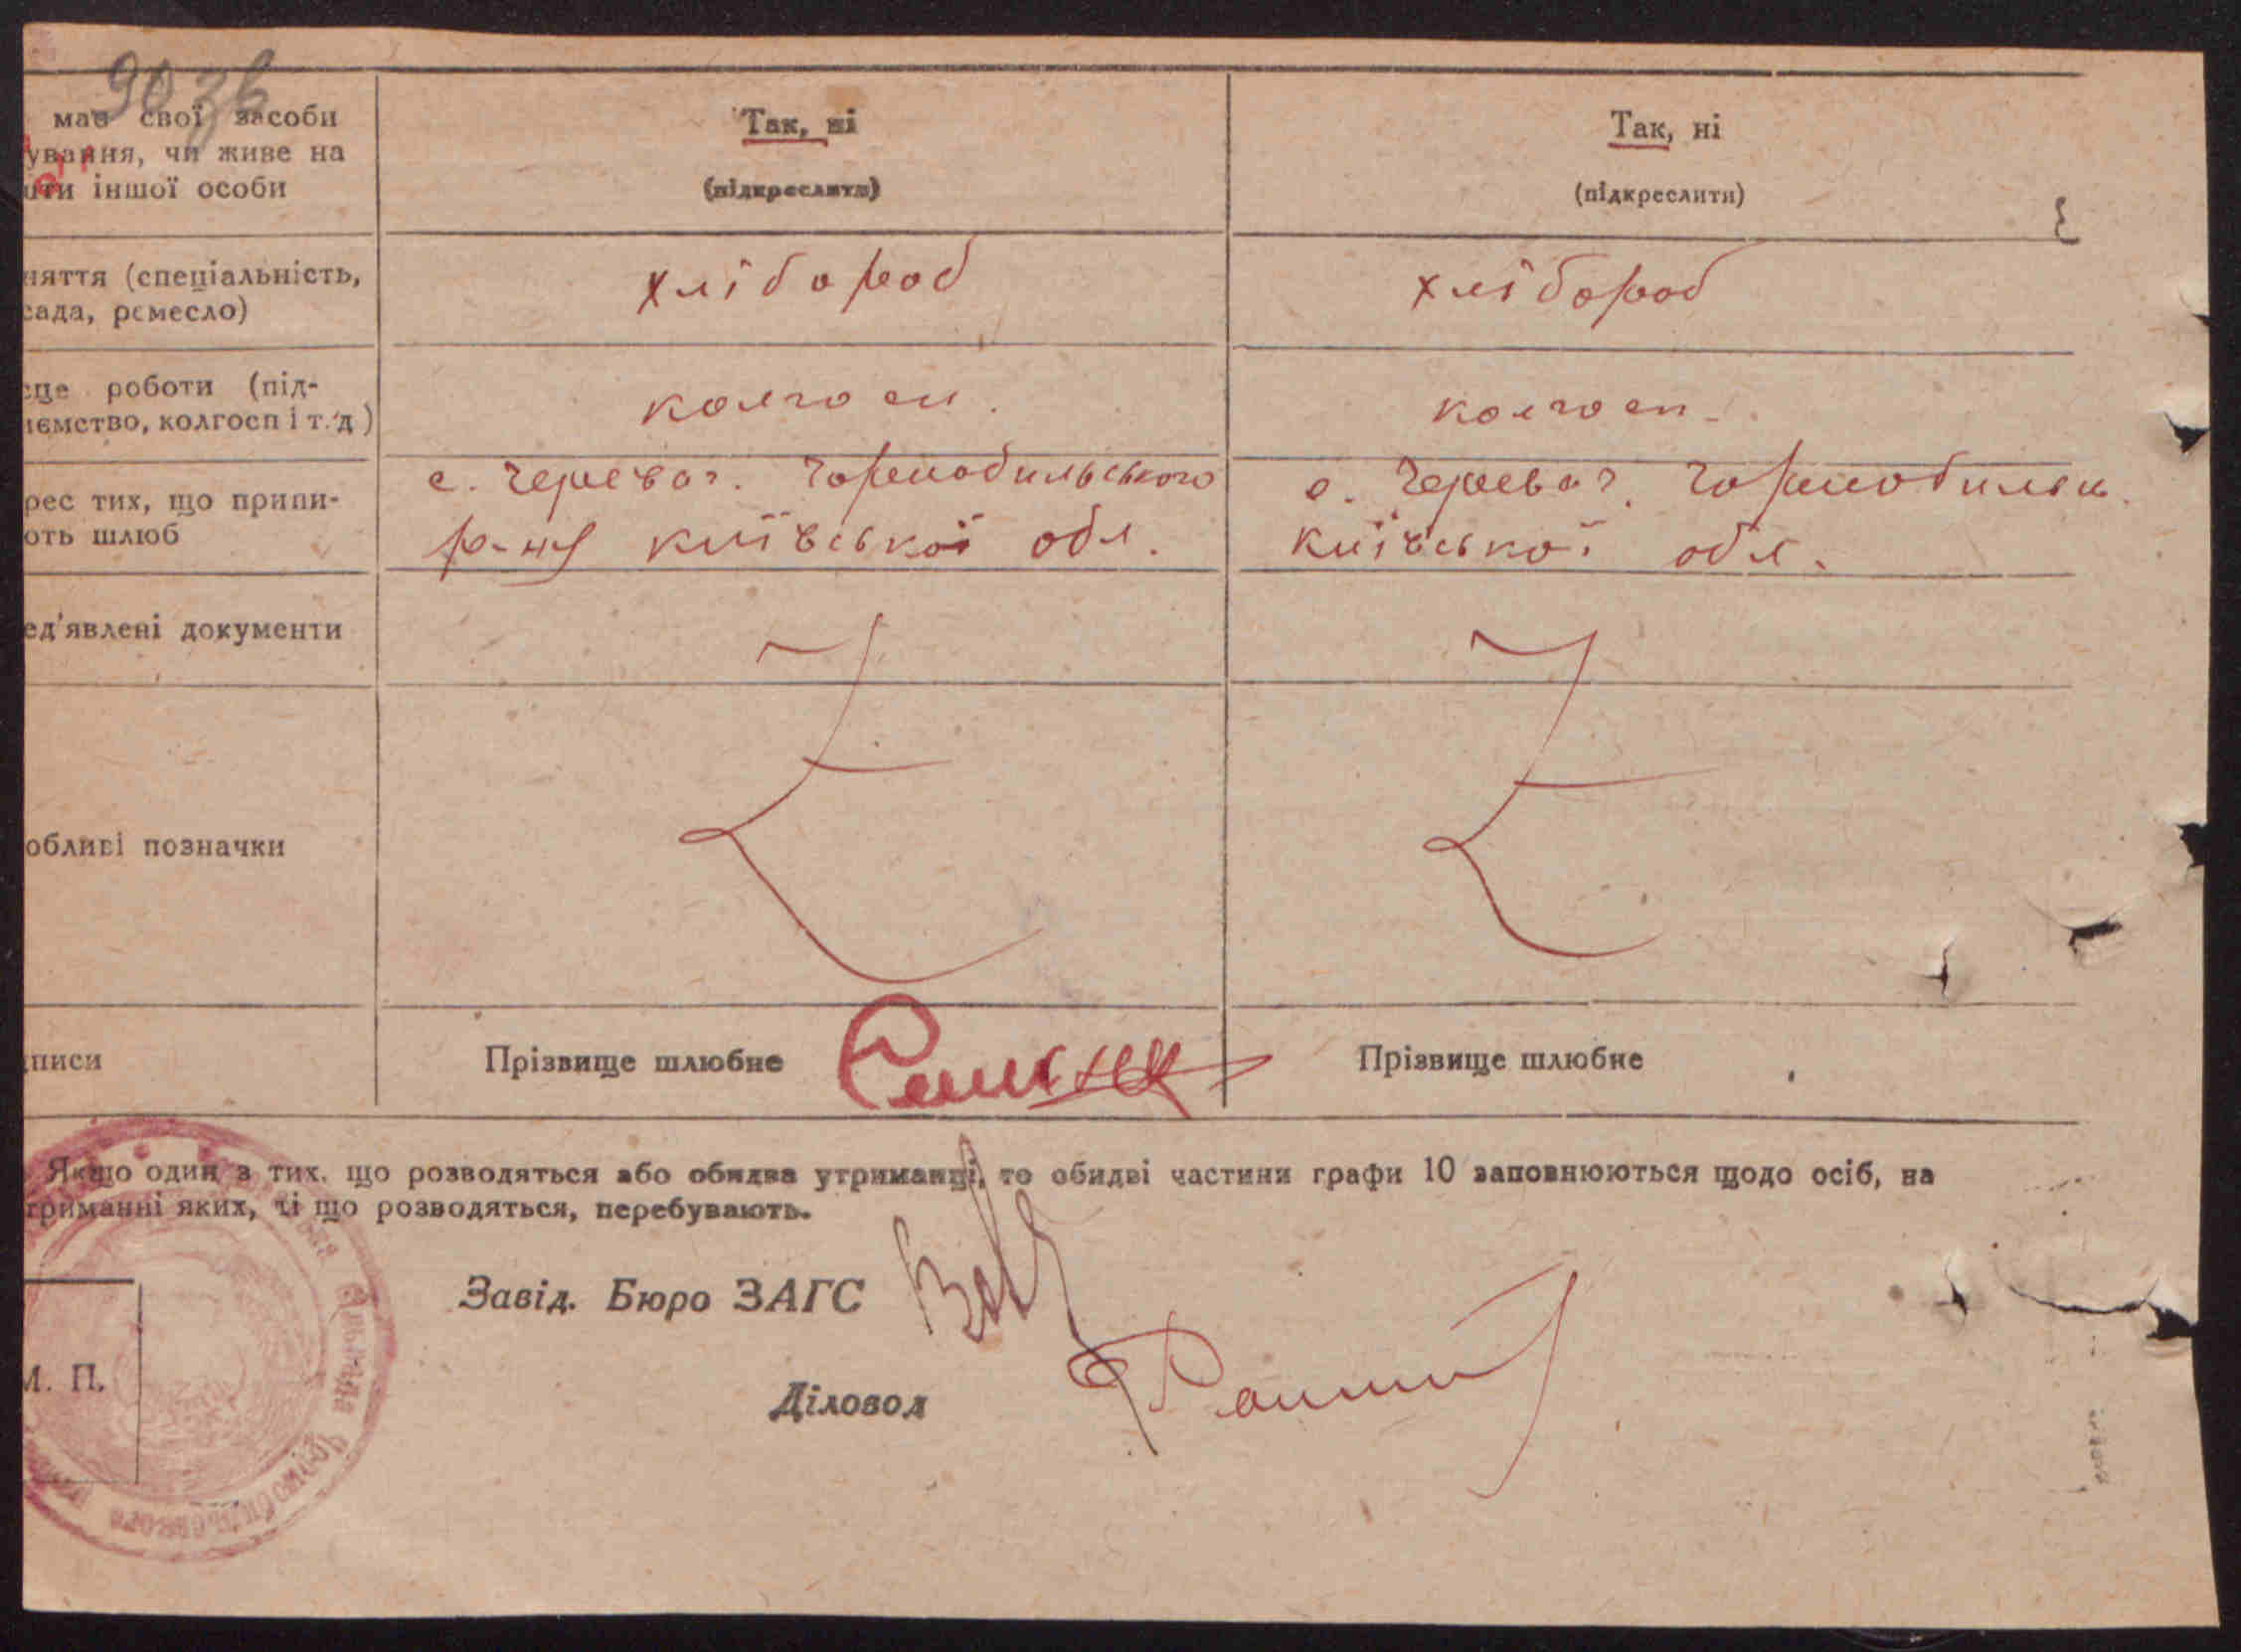 903б
має свої засоби
ування, чи живе на
шти іншої особи
Так, ні
(підкреслити)
Так, ні
(підкреслити)
няття (спеціальність,
сада, ремесло)
хлібороб
хлібороб
сце роботи (під-
иємство, колгосп і т. д)
колгосп.
колгосп.
рес тих, що припи-
оть шлюб
с. Черевач. Чорнобильського
р-ну Київської обл.
с. Черевач. Чорнобильськ.
Київської обл.
ед'явлені документи
обливі позначки
писи
Прізвище шлюбне
Прізвище шлюбне
Якщо один з тих, що розводяться або обидва утриманці, то обидві частини графи 10 заповнюються щодо осіб, на
триманні яких, ті що розводяться, перебувають.
Завід. Бюро ЗАГС
М. П.
Діловод
Чорнобильського